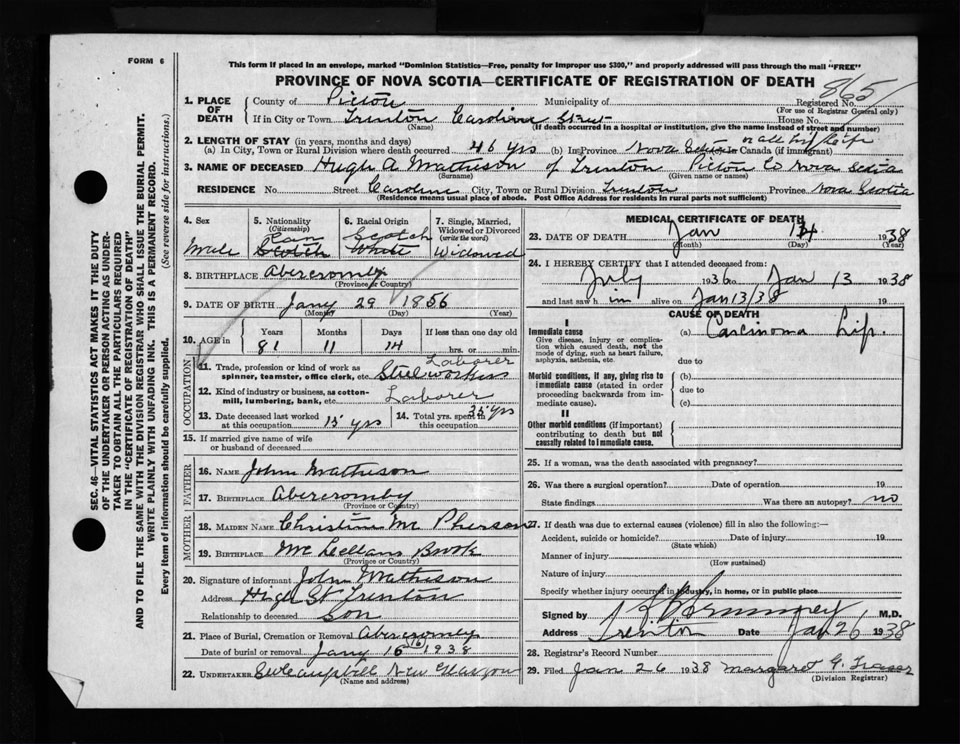 FORM 6
This form if placed in an envelope, marked "Dominion Statistics—Free, penalty for Improper use $300," and properly addressed will pass through the mail "FREE"
PROVINCE OF NOVA SCOTIA—CERTIFICATE OF REGISTRATION OF DEATH
865
1. PLACE OF DEATH
County of Pictou Municipality of Registered No.
(For use of Registrar General only)
If in City or Town Trenton Caroline Street House No.
(Name) (If death occurred in a hospital or institution, give the name instead of street and number)
2. LENGTH OF STAY (in years, months and days) or all his life
(a) In City, Town or Rural Division where death occurred 46 yrs (b) In Province Nova Scotia Canada (if immigrant)
3. NAME OF DECEASED Hugh A. Matheson of Trenton Pictou Co Nova Scotia
(Surname) (Given name or names)
RESIDENCE No. Street Caroline City, Town or Rural Division Trenton Province Nova Scotia
(Residence means usual place of abode. Post Office Address for residents in rural parts not sufficient)
4. Sex
Male
5. Nationality
(Citizenship)
Can
Scotch
6. Racial Origin
Scotch
White
7. Single, Married, Widowed or Divorced
(write the word)
Widowed
8. BIRTHPLACE Abercromby
(Province or Country)
9. DATE OF BIRTH Jany 29 1856
(Month) (Day) (Year)
10. AGE in Years Months Days If less than one day old
81 11 14 hrs. or min.
OCCUPATION
Laborer
11. Trade, profession or kind of work as spinner, teamster, office clerk, etc. Steelworkers
12. Kind of industry or business, as cotton-mill, lumbering, bank, etc. Laborer
13. Date deceased last worked at this occupation 15 yrs
14. Total yrs. spent in this occupation 35 yrs
15. If married give name of wife or husband of deceased
FATHER
16. NAME John Matheson
17. BIRTHPLACE Abercromby
(Province or Country)
MOTHER
18. MAIDEN NAME Christina Mc Pherson
19. BIRTHPLACE McLellans Brook
(Province or Country)
20. Signature of informant John Matheson
Address High St Trenton
Relationship to deceased Son
21. Place of Burial, Cremation or Removal Abercromby
Date of burial or removal Jany 16 (16) 1938
22. UNDERTAKER New Glasgow
(Name and address)
MEDICAL CERTIFICATE OF DEATH
23. DATE OF DEATH Jan 14 1938
(Month) (Day) (Year)
24. I HEREBY CERTIFY that I attended deceased from:
July 1936 to Jan 13 1938
and last saw him alive on Jan 13/38 19
CAUSE OF DEATH
I
Immediate cause (a) Carcinoma Lip.
Give disease, injury or complication which caused death, not the mode of dying, such as heart failure, asphyxia, asthenia, etc.
due to
Morbid conditions, if any, giving rise to immediate cause (stated in order proceeding backwards from immediate cause).
(b)
due to
(c)
II
Other morbid conditions (if important) contributing to death but not causally related to immediate cause.
25. If a woman, was the death associated with pregnancy?
26. Was there a surgical operation? Date of operation 19
State findings Was there an autopsy? no
27. If death was due to external causes (violence) fill in also the following:—
Accident, suicide or homicide? Date of injury 19
(State which)
Manner of injury
(How sustained)
Nature of injury
Specify whether injury occurred in industry, in home, or in public place
Signed by M.D.
Address Trenton Date Jan 26 1938
28. Registrar's Record Number
29. Filed Jan 26 1938 Margaret G. Fraser
(Division Registrar)
SEC. 46—VITAL STATISTICS ACT MAKES IT THE DUTY
OF THE UNDERTAKER OR PERSON ACTING AS UNDER-
TAKER TO OBTAIN ALL THE PARTICULARS REQUIRED
IN THE "CERTIFICATE OF REGISTRATION OF DEATH"
AND TO FILE THE SAME WITH THE DIVISION REGISTRAR WHO SHALL ISSUE THE BURIAL PERMIT.
WRITE PLAINLY WITH UNFADING INK. THIS IS A PERMANENT RECORD.
Every item of information should be carefully supplied. (See reverse side for instructions.)